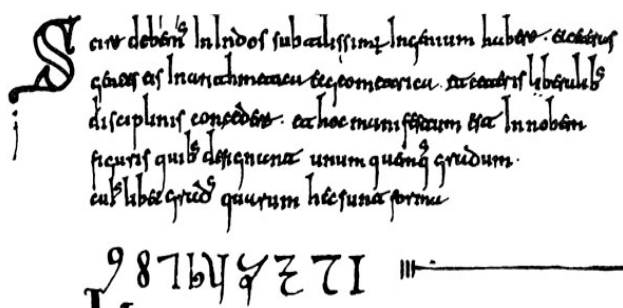 Scire debemˢ In Indos subtilissimū Ingenium habere · et ceteras
gentes eis In arithmetica et geometrica · et ceteris liberalibˢ
disciplinis concedere · et hoc manifestum est In nobem
figuris quibˢ designant unum quemqˢ gradum ·
cuiˢlibet gradˢ quarum hec sunt forma
9 8 7 6 5 4 3 2 1